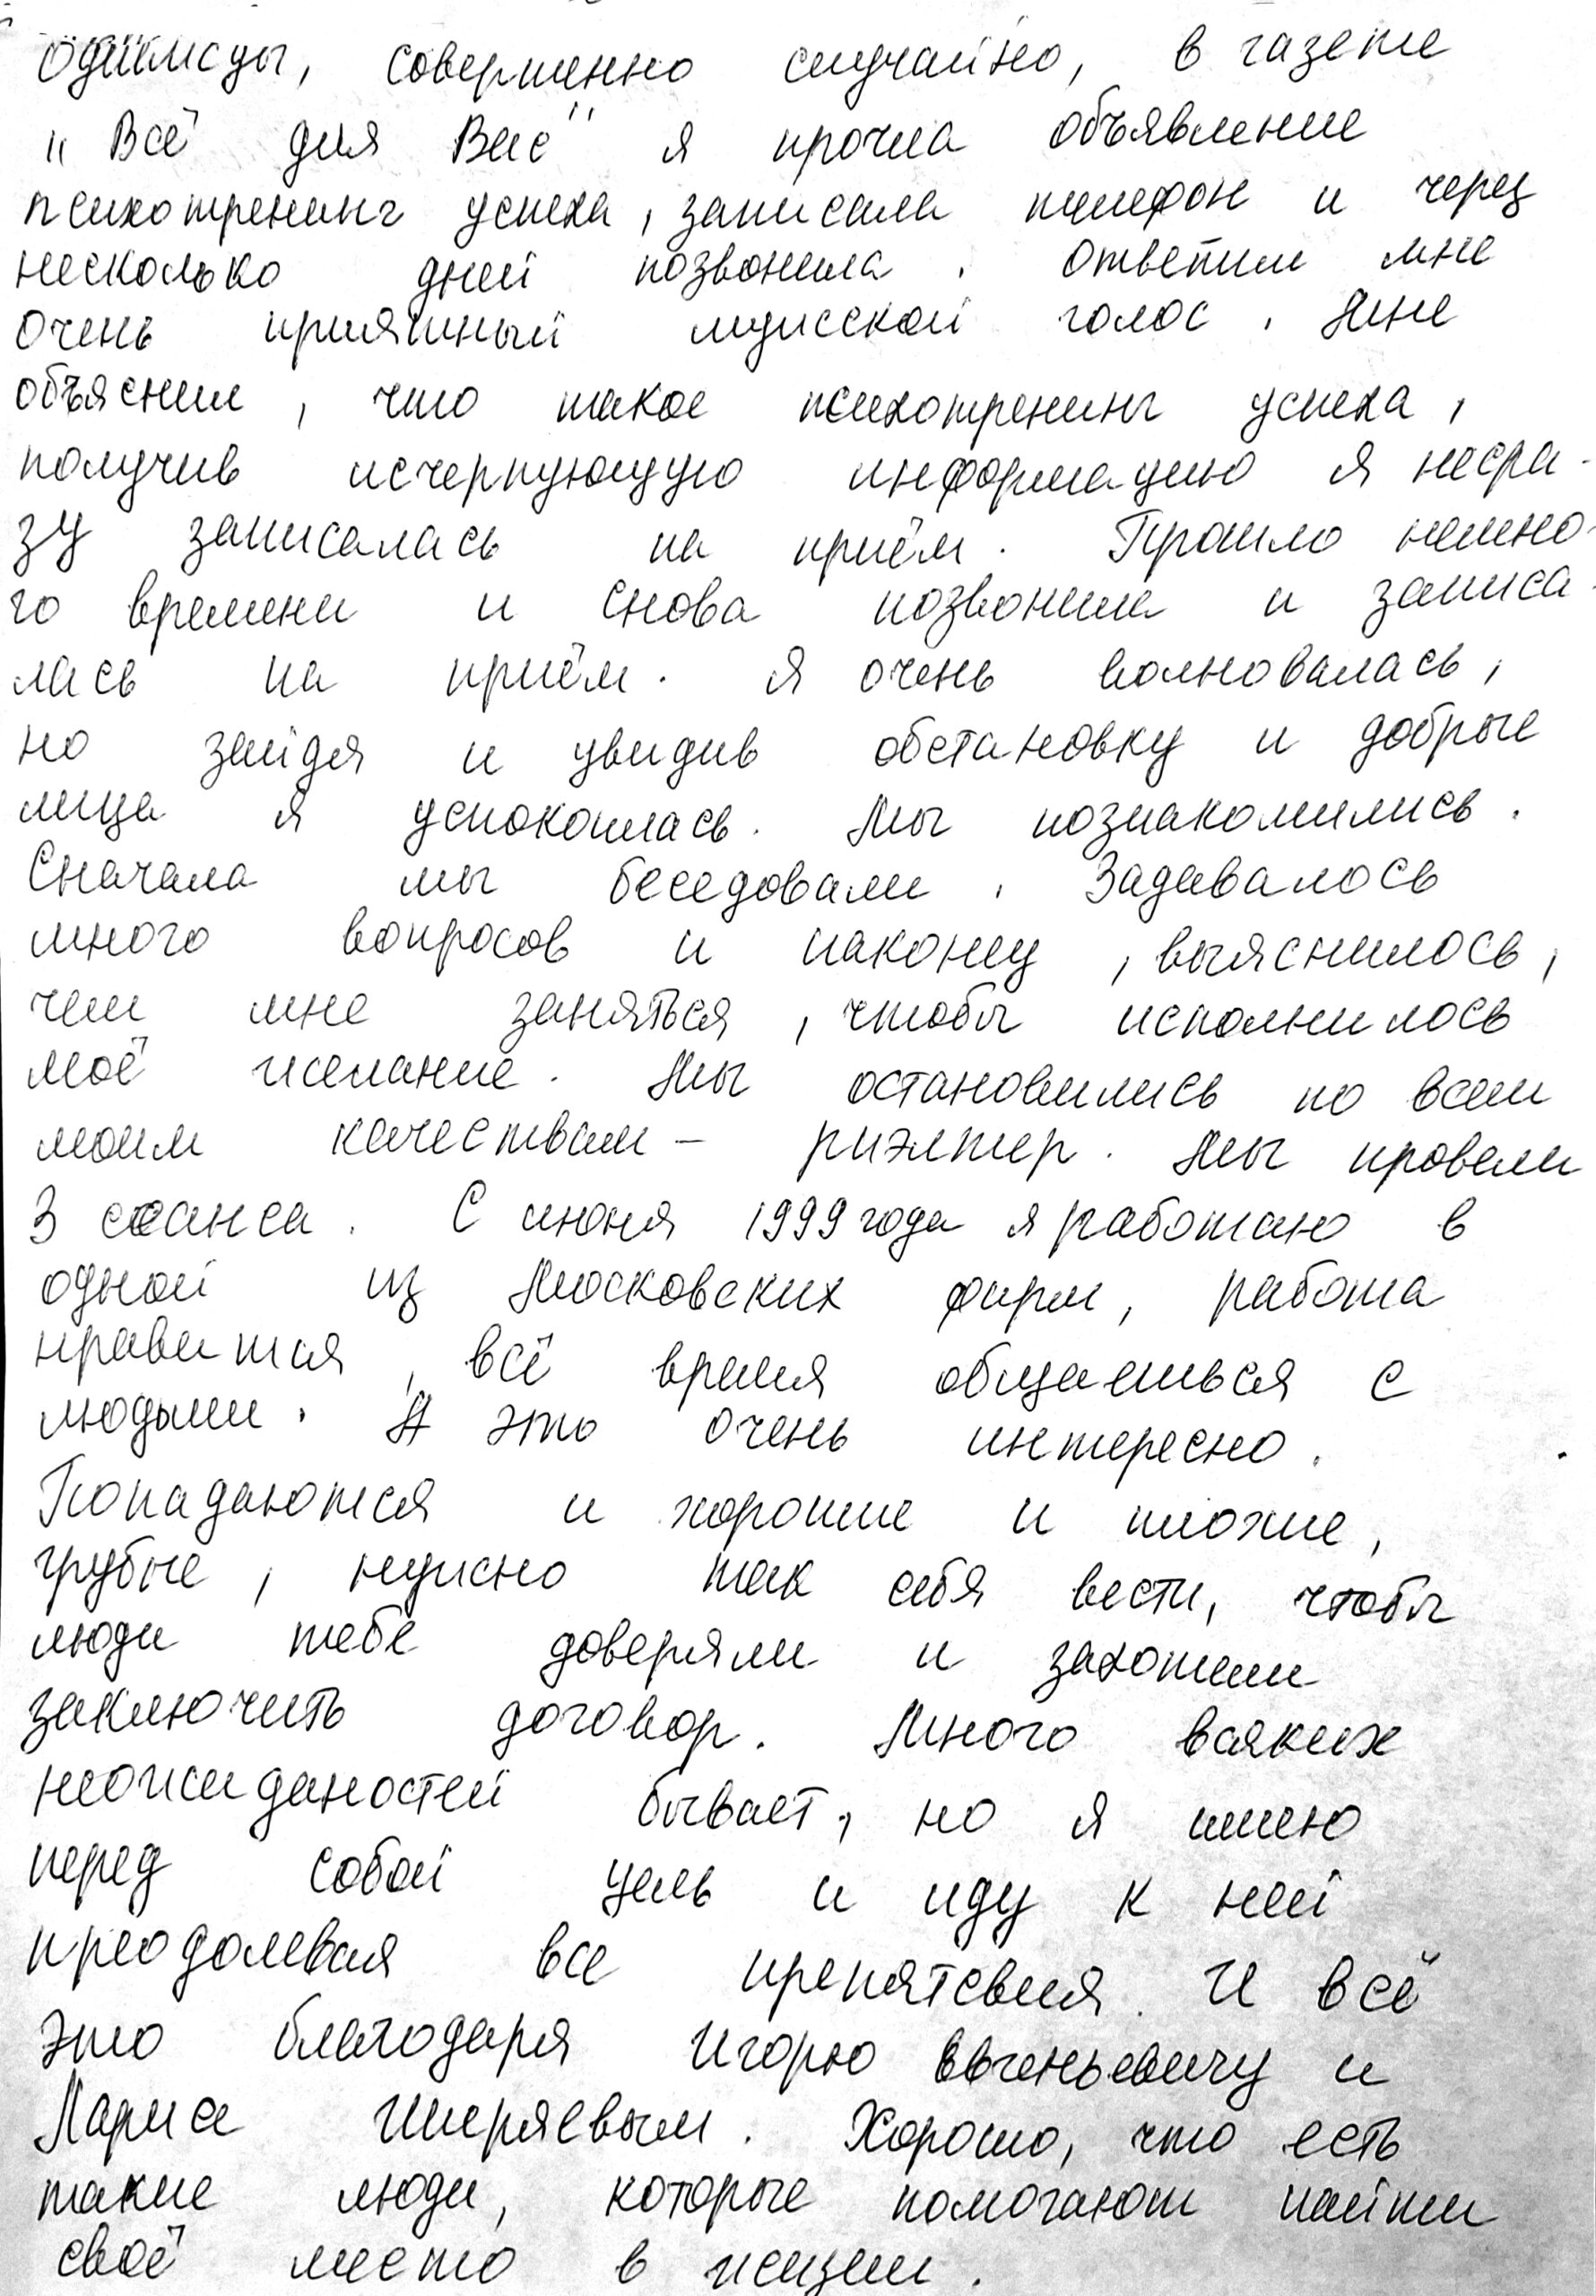 Однажды, совершенно случайно, в газете
"Всё для Вас" я прочла объявление
психотренинг успеха, записала телефон и через
несколько дней позвонила. Ответил мне
очень приятный мужской голос. Мне
объяснил, что такое психотренинг успеха,
получив исчерпующую информацию я несра-
зу записалась на приём. Прошло немно-
го времени и снова позвонила и записа-
лась на приём. Я очень волновалась,
но зайдя и увидив обстановку и добрые
лица я успокоилась. Мы познакомились.
Сначала мы беседовали. Задавалось
много вопросов и наконец, выяснилось,
чем мне заняться, чтобы исполнилось
моё желание. Мы остановились по всем
моим качествам – риэлтер. Мы провели
3 сеанса. С июня 1999 года я работаю в
одной из Московских фирм, работа
нравится, всё время общаешься с
людьми. А это очень интересно.
Попадаются и хорошие и плохие,
грубые, нужно так себя вести, чтобы
люди тебе доверяли и захотели
заключить договор. Много всяких
неожиданостей бывает, но я имею
перед собой цель и иду к ней
преодолевая все препятсвия. И всё
это благодаря Игорю Евгеньевичу и
Ларисе Ширяевым. Хорошо, что есть
такие люди, которые помогают найти
своё место в жизни.